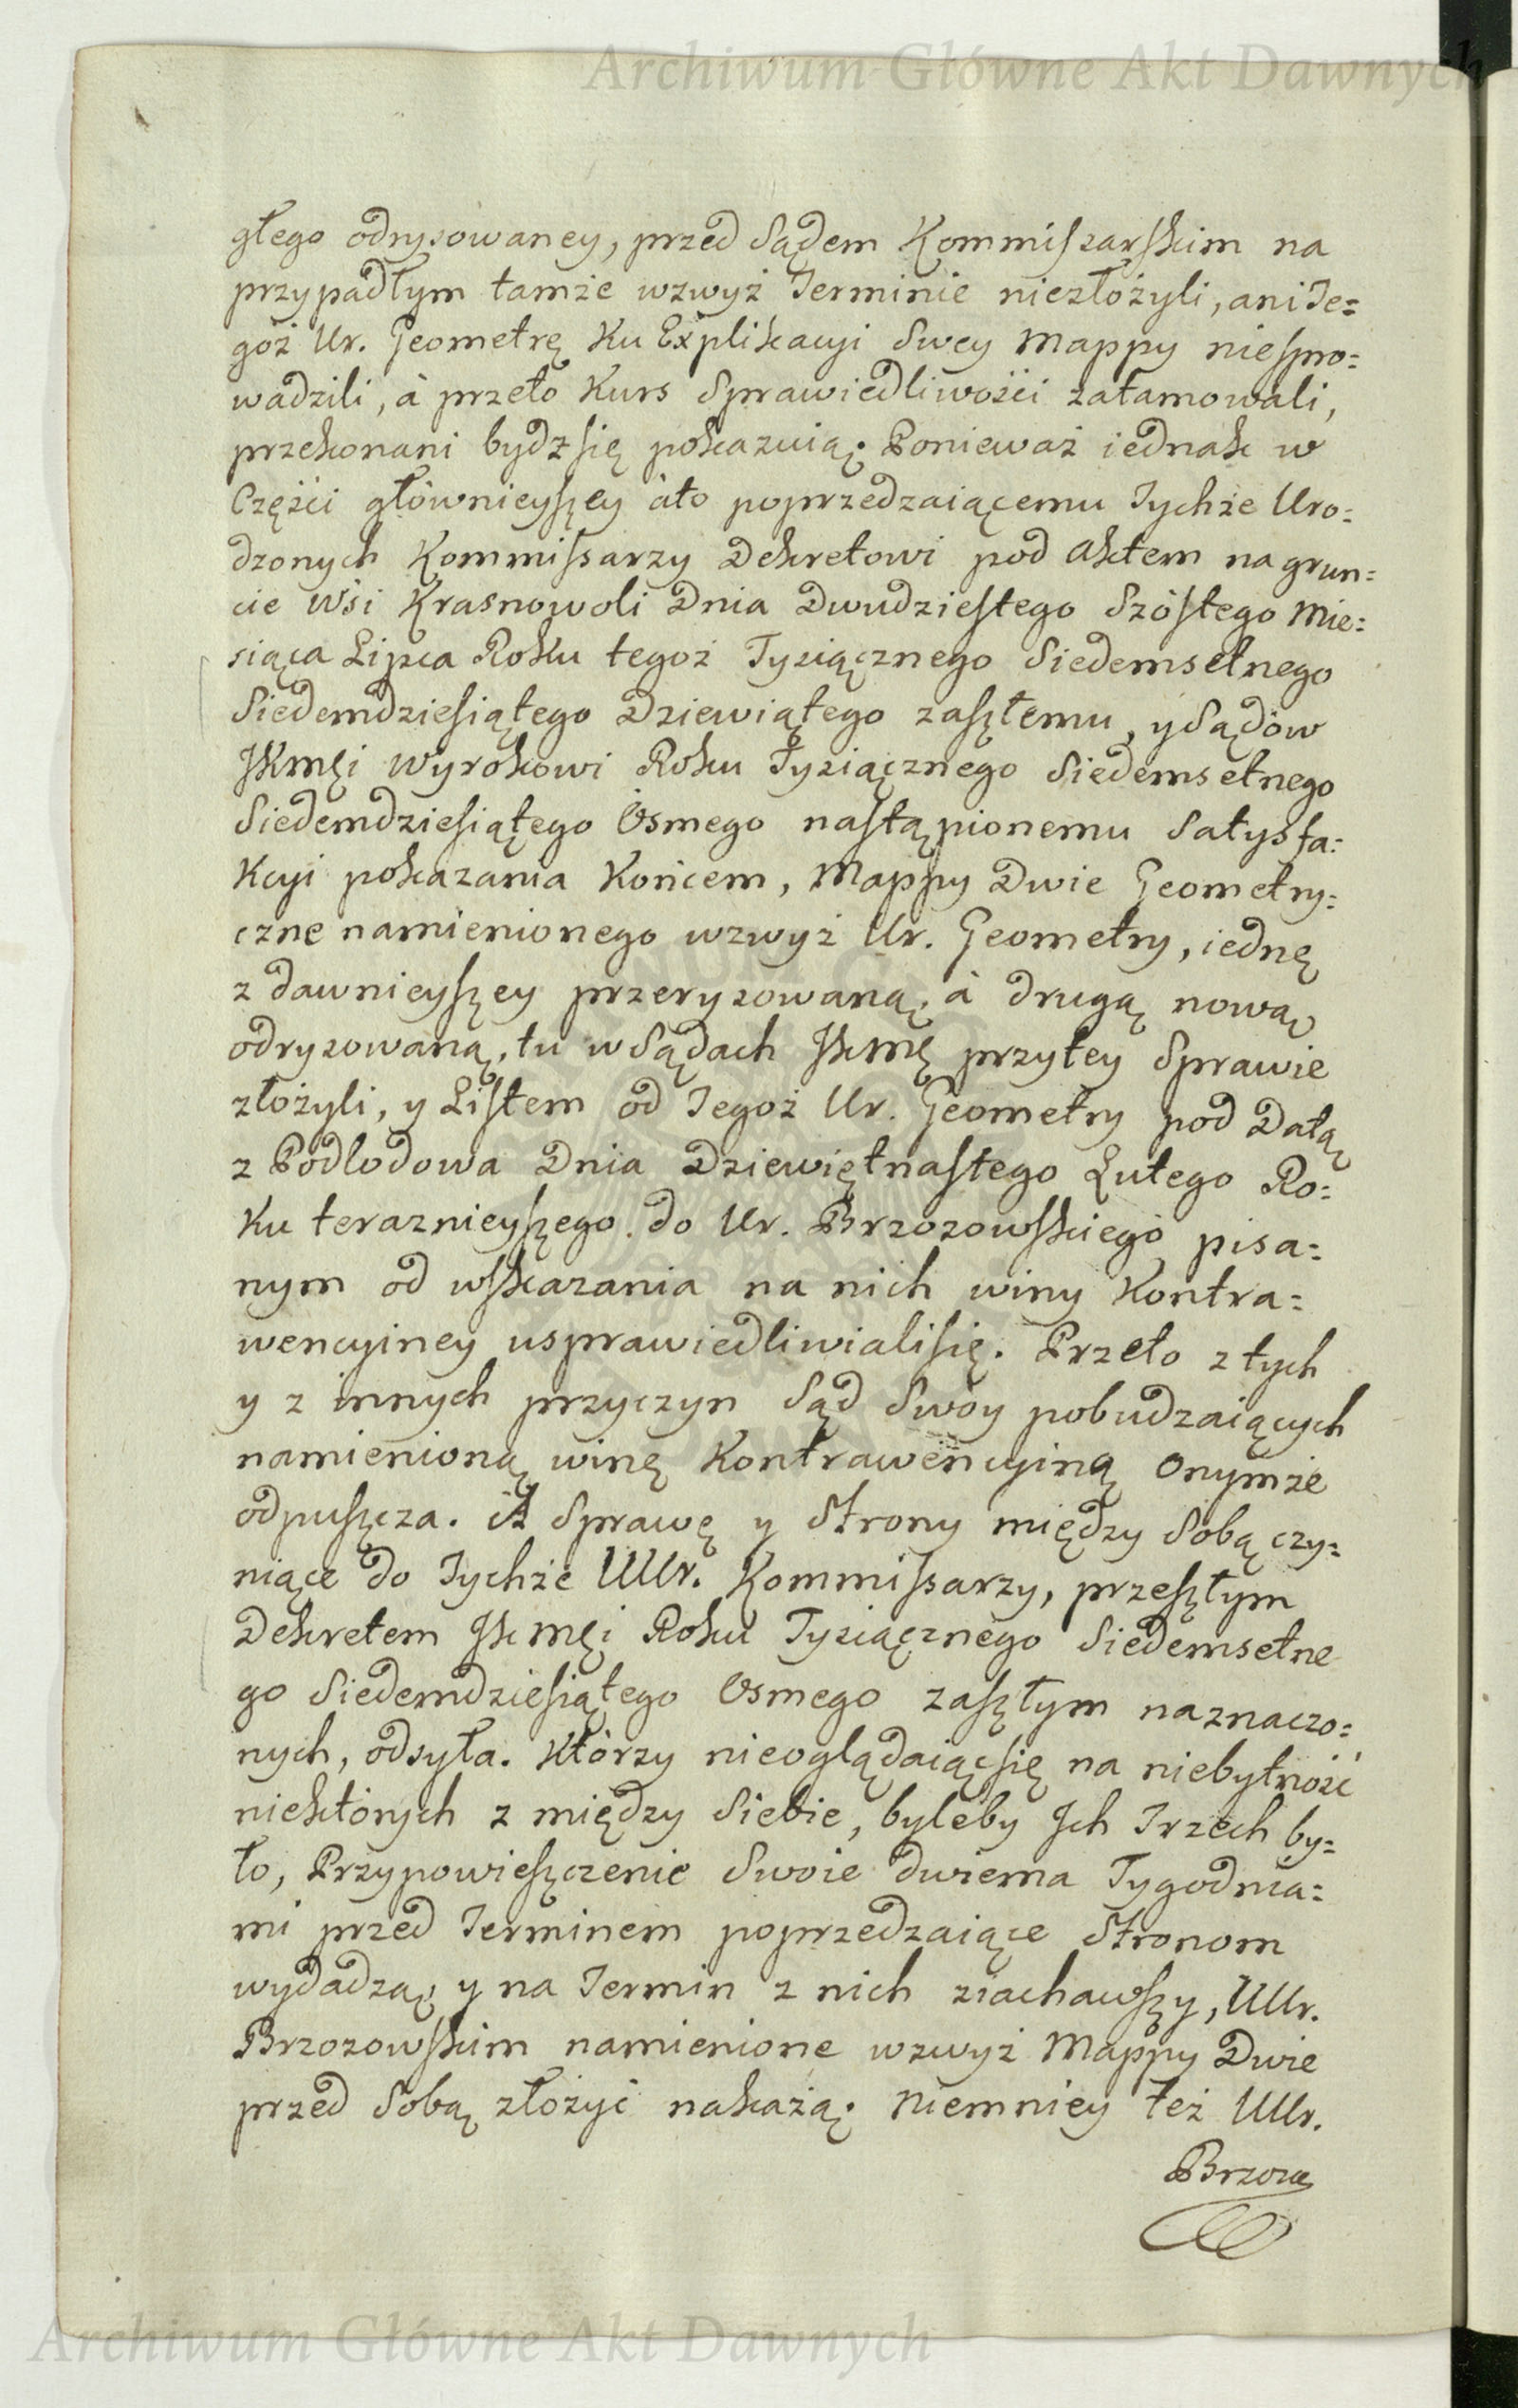 Archiwum Główne Akt Dawnych
głego odrysowaney, przed Sądem Kommissarskim na
przypadłym tamże wzwyż Terminie niezłożyli, ani Te=
goż Ur. Geometrę Ku Explikacyi Swey Mappy niespro=
wadzili, à przeto Kurs Sprawiedliwości zatamowali,
przekonani bydz się pokazuią. Ponieważ iednak w
Części główniejszey àto poprzedzaiącemu Tychże Uro=
dzonych Kommissarzy Dekretowi pod Aktem na grun=
cie Wsi Krasnowoli Dnia Dwudziestego Szóstego Mie=
siąca Lipca Roku tegoż Tysiącznego Siedemsetnego
Siedemdziesiątego Dziewiątego zaszłemu, y Sądów
JKmci Wyrokowi Roku Tysiącznego Siedemsetnego
Siedemdziesiątego Osmego nastąpionemu Satysfa=
kcyi pokazania Końcem, Mappy Dwie Geometry=
czne namienionego wzwyż Ur. Geometry, iednę
z dawnieyszey przerysowaną, à drugą nową
odrysowaną, tu w Sądach JKmć przytey Sprawie
złożyli, y Listem od Tegoż Ur. Geometry pod Datą
z Podlodowa Dnia Dziewiętnastego Lutego Ro=
ku teraznieyszego do Ur. Brzozowskiego pisa=
nym od wskazania na nich winy Kontra=
wencyiney usprawiedliwialisię. Przeto z tych
y z innych przyczyn Sąd Swóy pobudzaiących
namienioną winę Kontrawencyiną Onymże
odpuszcza. A Sprawę y Strony między Sobą czy=
niące do Tychże UUr. Kommissarzy, przeszłym
Dekretem JKmci Roku Tysiącznego Siedemsetne
go Siedemdziesiątego Osmego zaszłym naznaczo=
nych, odsyła. Którzy nieoglądaiącsię na niebytność
niektórych z między Siebie, byleby Jch Trzech by=
ło, Przypowieszczenie Swoie dwiema Tygodnia=
mi przed Terminem poprzedzaiące Stronom
wydadzą, y na Termin z nich ziachawszy, UUr.
Brzozowskim namienione wzwyż Mappy Dwie
przed Sobą złożyć nakażą. Niemniey też UUr.
Brzozo
Archiwum Główne Akt Dawnych